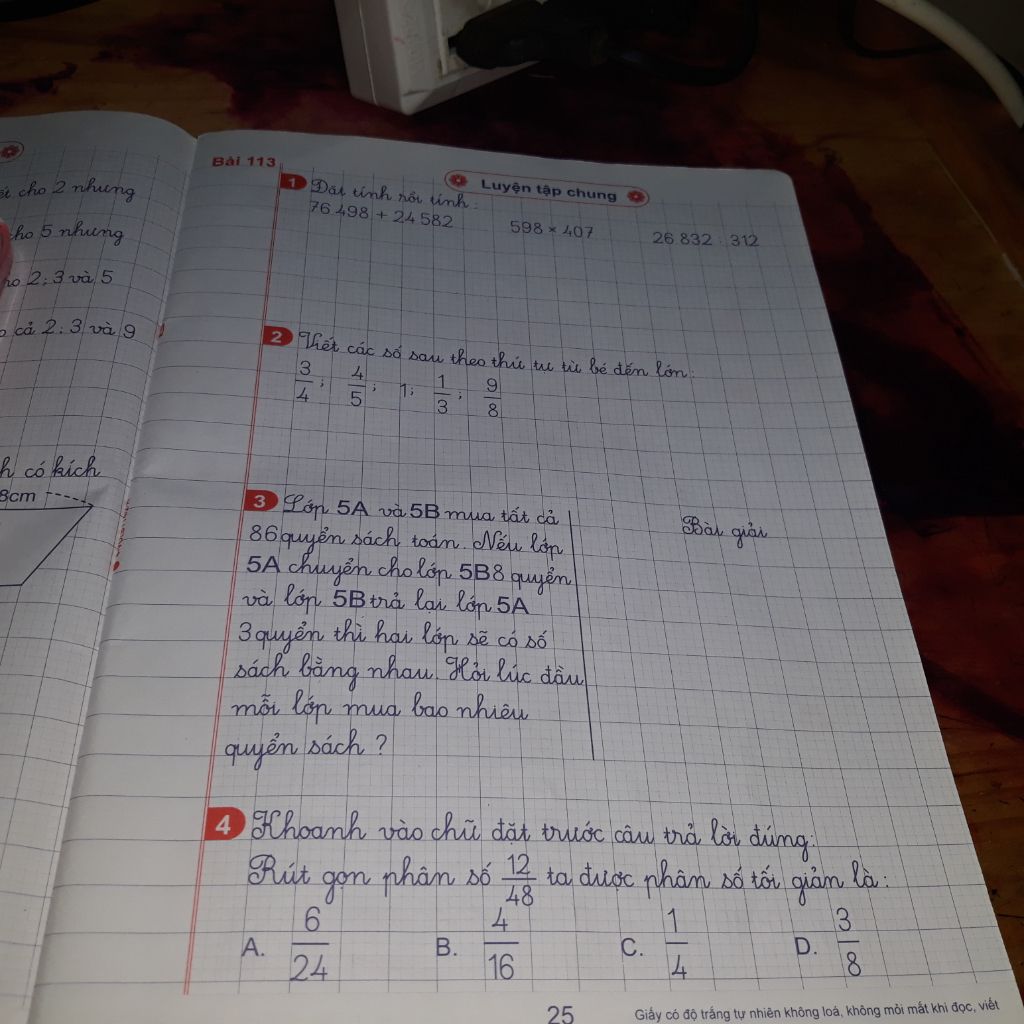 ết cho 2 nhưng
cho 5 nhưng
ho 2; 3 và 5
o cả 2; 3 và 9
h có kích
8cm
Bài 113
Luyện tập chung
1 Đặt tính rồi tính:
76 498 + 24 582 598 × 407 26 832 : 312
2 Viết các số sau theo thứ tự từ bé đến lớn:
3/4; 4/5; 1; 1/3; 9/8
3 Lớp 5A và 5B mua tất cả
86 quyển sách toán. Nếu lớp
5A chuyển cho lớp 5B 8 quyển
và lớp 5B trả lại lớp 5A
3 quyển thì hai lớp sẽ có số
sách bằng nhau. Hỏi lúc đầu
mỗi lớp mua bao nhiêu
quyển sách ?
Bài giải
4 Khoanh vào chữ đặt trước câu trả lời đúng:
Rút gọn phân số 12/48 ta được phân số tối giản là:
A. 6/24 B. 4/16 C. 1/4 D. 3/8
25
Giấy có độ trắng tự nhiên không loá, không mỏi mắt khi đọc, viết